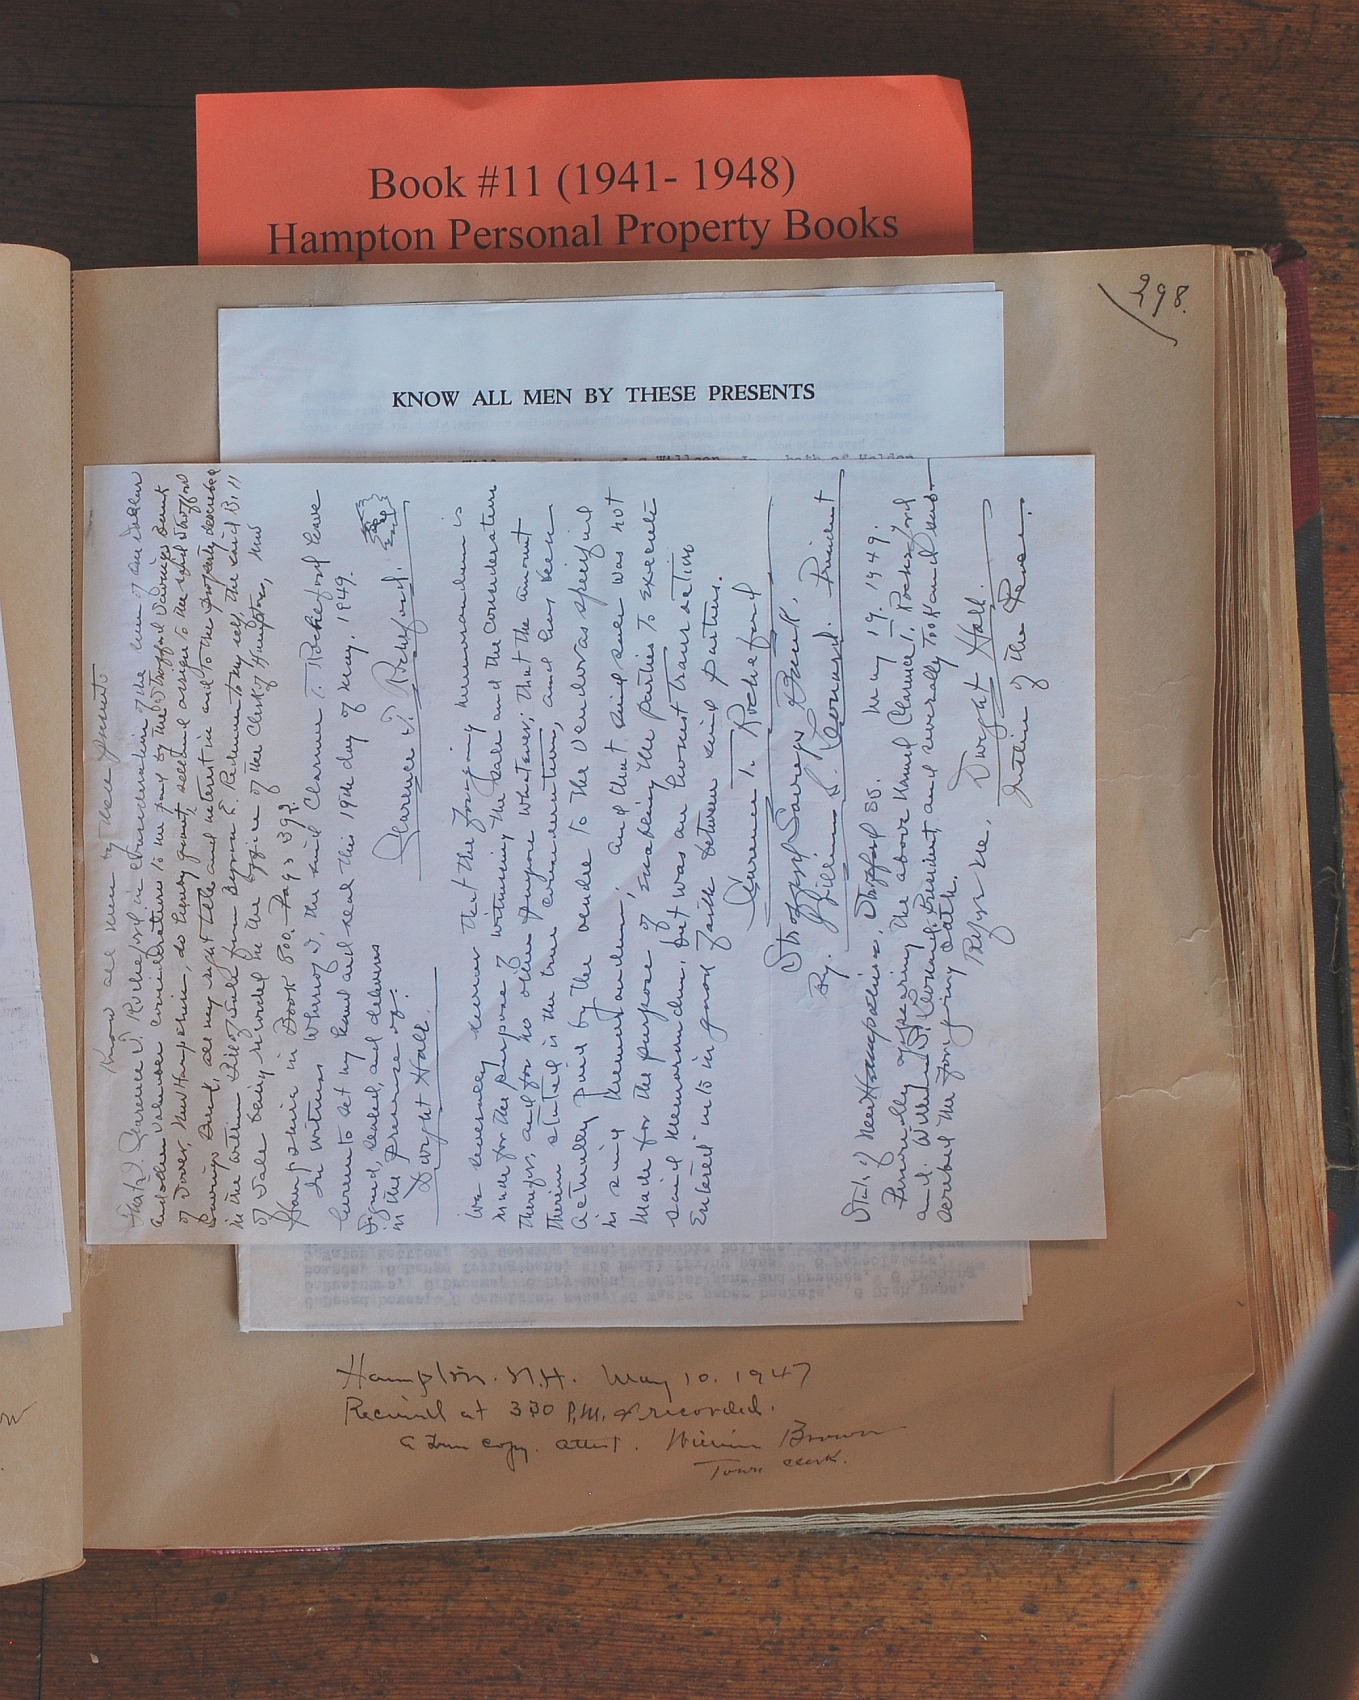 Book #11 (1941- 1948)
Hampton Personal Property Books
298.
KNOW ALL MEN BY THESE PRESENTS
both of Malden
Know all men by these presents
That I, Clarence T. Rocheford in consideration of the sum of one dollar
and other valuable considerations to me paid by the Strafford Savings Bank
of Dover, New Hampshire, do hereby grant, sell and assign to the said Strafford
Savings Bank, all my right title and interest in and to the property described
in the within Bill of Sale from E. to myself, the said Bill
of Sale being recorded in the Office of the Clerk of Hampton, New
Hampshire in Book 800. Page 397.
In witness whereof I, the said Clarence T. Rocheford have
hereunto set my hand and seal this 19th day of May, 1949.
Signed, sealed, and delivered
in the presence of:
Dwight Hall. Clarence T. Rocheford.
We severally swear that the foregoing memorandum is
made for the purpose of witnessing the sale and the consideration
therefor, and for no other purpose whatever; that the amount
therein stated is the true consideration, and has been
actually paid by the vendee to the vendor as specified
in said memorandum; and that said sale was not
made for the purpose of enabling the parties to execute
said memorandum, but was an honest transaction
entered into in good faith between said parties.
Clarence T. Rocheford
Strafford Savings Bank,
By. William S. Leonard. President
State of New Hampshire, Strafford SS. May 19, 1949.
Personally appearing the above named Clarence T. Rocheford
and William S. Leonard, President, and severally took and subscribed
the foregoing oath.
Before me, Dwight Hall.
Justice of the Peace.
Hampton. N.H. May 10. 1947
Received at 3 30 P.M. & recorded.
a true copy. attest. William Brown
Town Clerk.